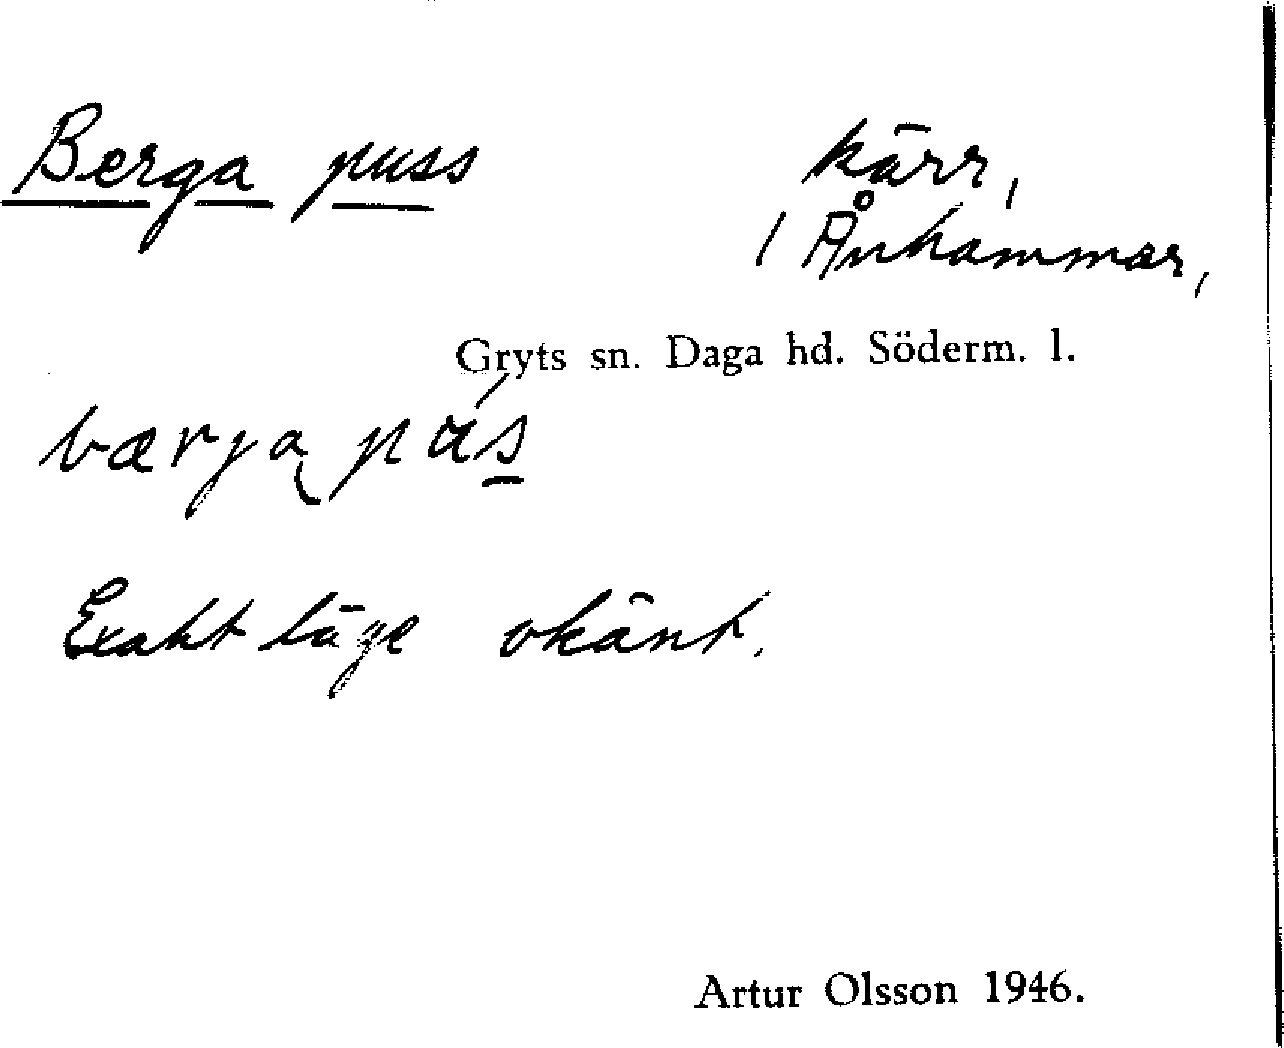 Berga puss kärr,
/ Ånhammar,
Gryts sn. Daga hd. Söderm. l.
bærja pus
Exakt läge okänt.
Artur Olsson 1946.